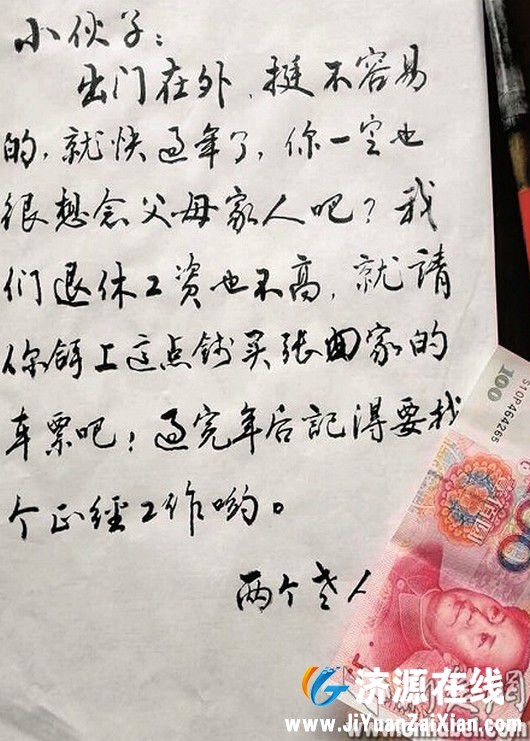 小伙子：
出门在外，挺不容易
的，就快过年了，你一定也
很想念父母家人吧？我
们退休工资也不高，就請
你拿上这点钱买张回家的
车票吧！过完年后記得要找
个正經工作哟。
两个老人
100
S10P464265
济源在线
www.JiYuanZaiXian.com